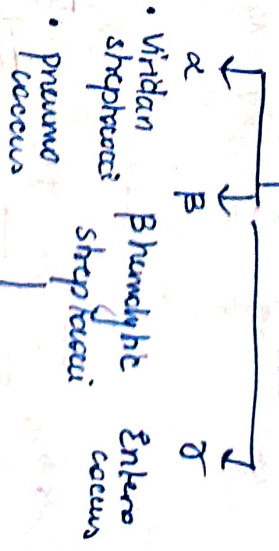 α
β
γ
• Viridan
streptococci
• pneumo
coccus
β hemolytic
streptococci
Entero
coccus